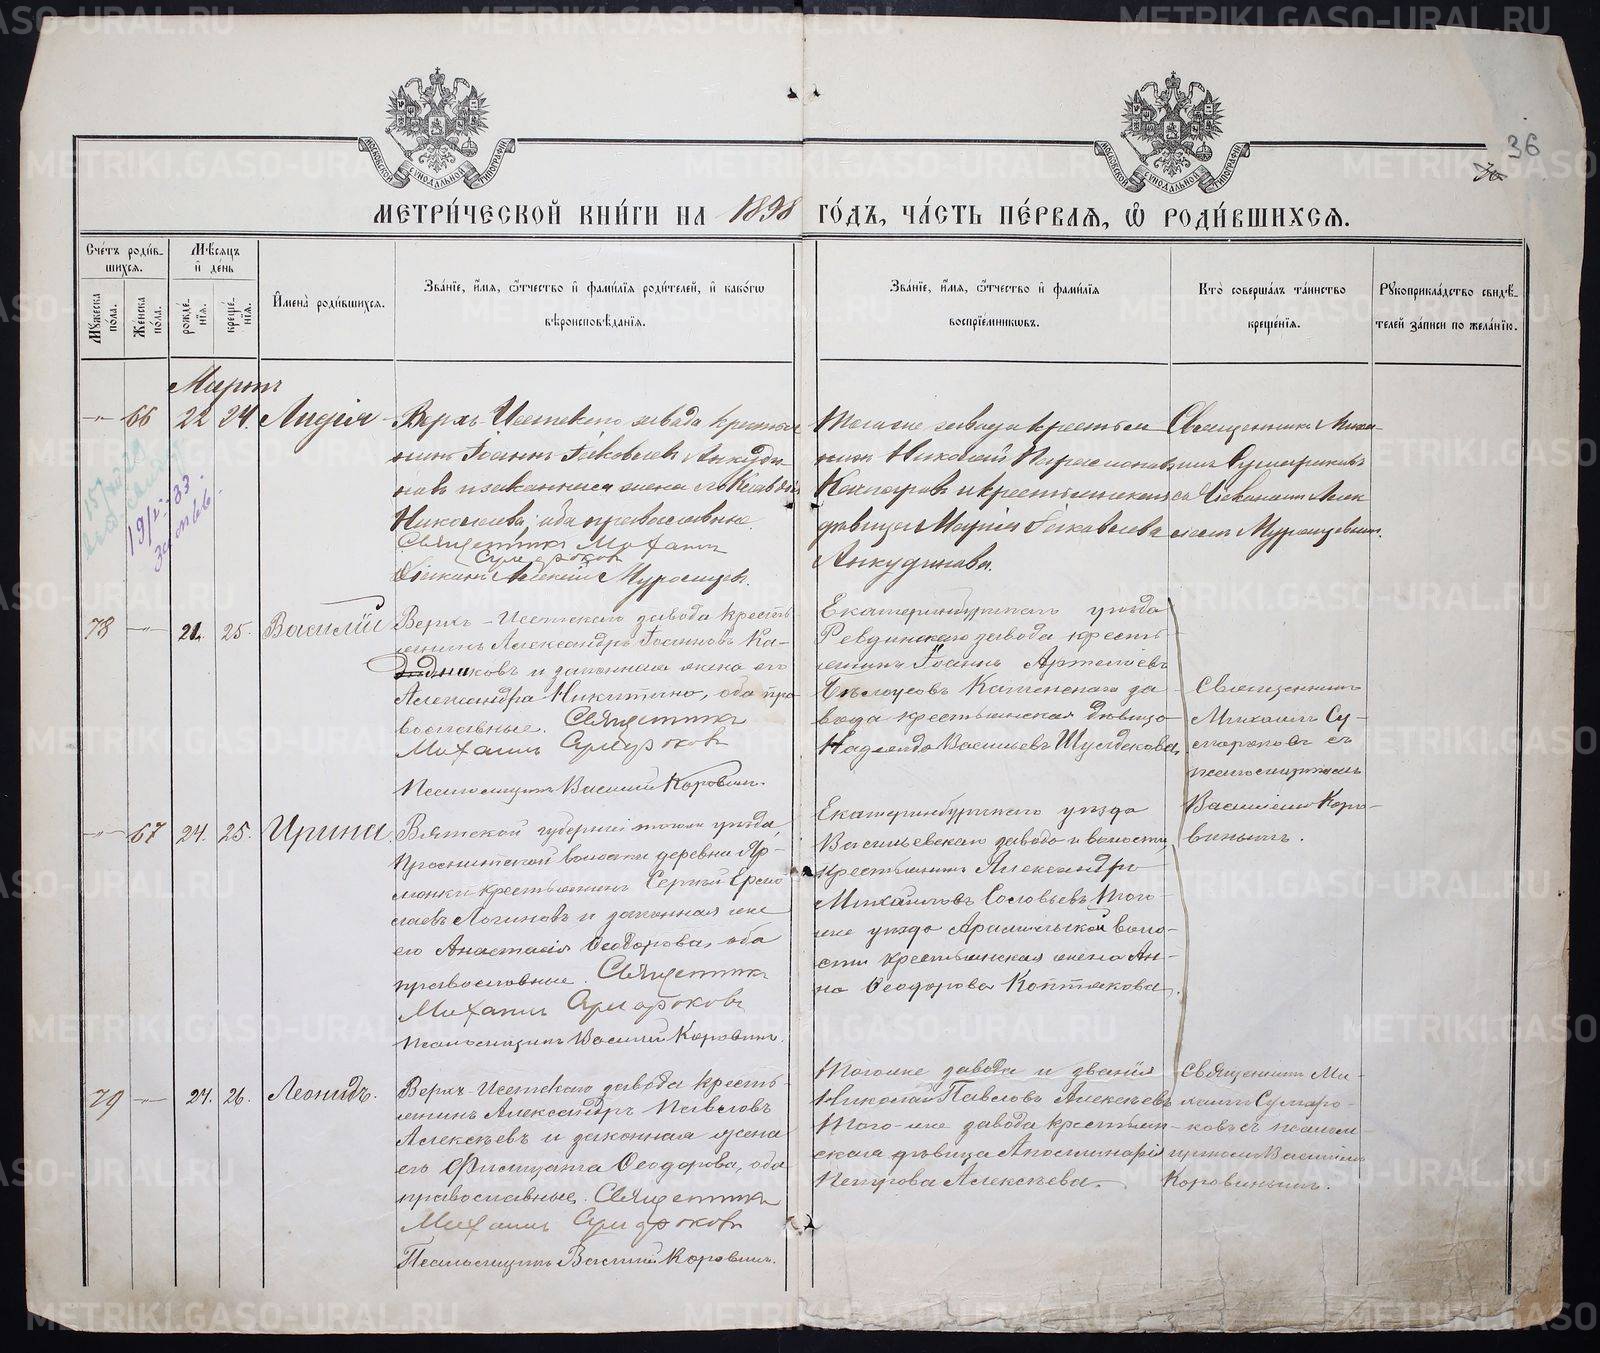 36
МЕТРИ́ЧЕСКОЙ КНИ́ГИ НА 1898 ГО́ДЪ, ЧА́СТЬ ПЕ́РВАЯ, Ѿ РОДИ́ВШИХСЯ.
Сче́тъ роди́в-
шихся.
Мужеска по́ла.
Женска по́ла.
Мѣсяцъ и́ де́нь
рожде́нїя.
креще́нїя.
И҆мена̀ роди́вшихся.
Зва́нїе, и҆́мя, ѻ҆́тчество и҆ фами́лїя роди́телей, и҆ како́гѡ
вѣроисповѣ́данїя.
Зва́нїе, и҆́мя, ѻ҆́тчество и҆ фами́лїя
воспрїе́мникѡвъ.
Кто̀ соверша́лъ та́инство
креще́нїя.
Рукоприкла́дство свидѣ́-
телей за́писи по жела́нїю.
Мартъ
66 22 24. Лидія
Верхъ-Исетскаго завода крестья
нинъ Іоаннъ Іаковлевъ Анкуди-
новъ и законная жена его
Николаева, оба православные.
Священникъ Михаилъ
Сумароковъ
Діаконъ Алексій Муромцев.
Тогоже завода крестья
нинъ Николай
и крестьянская
дѣвица Марія Іаковлева
Анкудинова.
Священникъ Миха-
илъ Сумароковъ
съ Діакономъ Алек
сіемъ Муромцевымъ.
78 21. 25. Василій
Верхъ-Исетскаго завода кресть-
янинъ Александръ Іоанновъ Ка-
дниковъ и законная жена его
Александра Никитина, оба пра
вославные. Священникъ
Михаилъ Сумароковъ
Псаломщикъ Василій Коровинъ.
Екатеринбургскаго уѣзда
Ревдинскаго завода кресть-
янинъ Іоаннъ Артемьевъ
Бѣлоусовъ Каменскаго за
вода крестьянская дѣвица
Надежда Васильева
Священникъ
Михаилъ Су-
мароковъ съ
псаломщикомъ
Василіемъ Коро-
винымъ.
67 24. 25. Ирина
Вятской губерніи того уѣзда,
волости деревни Яр-
крестьянинъ Сергѣй Ермо
лаевъ Логиновъ и законная жена
его Анастасія Ѳеодорова, оба
православные. Священникъ
Михаилъ Сумароковъ
Псаломщикъ Василій Коровинъ.
Екатеринбургскаго уѣзда
Васильевскаго завода и волости,
крестьянинъ Александръ
Михайловъ Соловьевъ Того-
же уѣзда Арамильской воло-
сти крестьянская жена Ан-
на Ѳеодорова Коптякова.
79 24. 26. Леонидъ.
Верхъ-Исетскаго завода кресть-
янинъ Александръ Павловъ
Алексѣевъ и законная жена
его Фистцата Ѳеодорова, оба
православные. Священникъ
Михаилъ Сумароковъ
Псаломщикъ Василій Коровинъ.
Тогоже завода и званія
Николай Павловъ Алексѣевъ
Того-же завода крестьян-
ская дѣвица Аполлинарія
Петрова Алексѣева.
Священникъ Ми-
хаилъ Сумаро-
ковъ съ псалом-
щикомъ Василіемъ
Коровинымъ.
METRIKI.GASO-URAL.RU